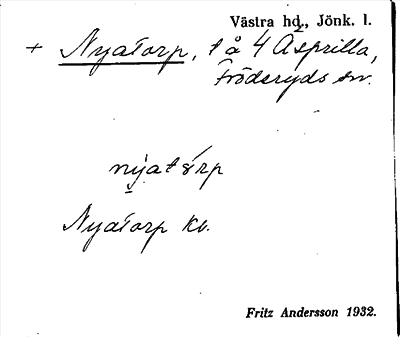 Västra hd., Jönk. l.
+ Nyatorp, t å 4 Äsprilla,
Fröderyds sn.
nyatórp
Nyatorp kv.
Fritz Andersson 1932.